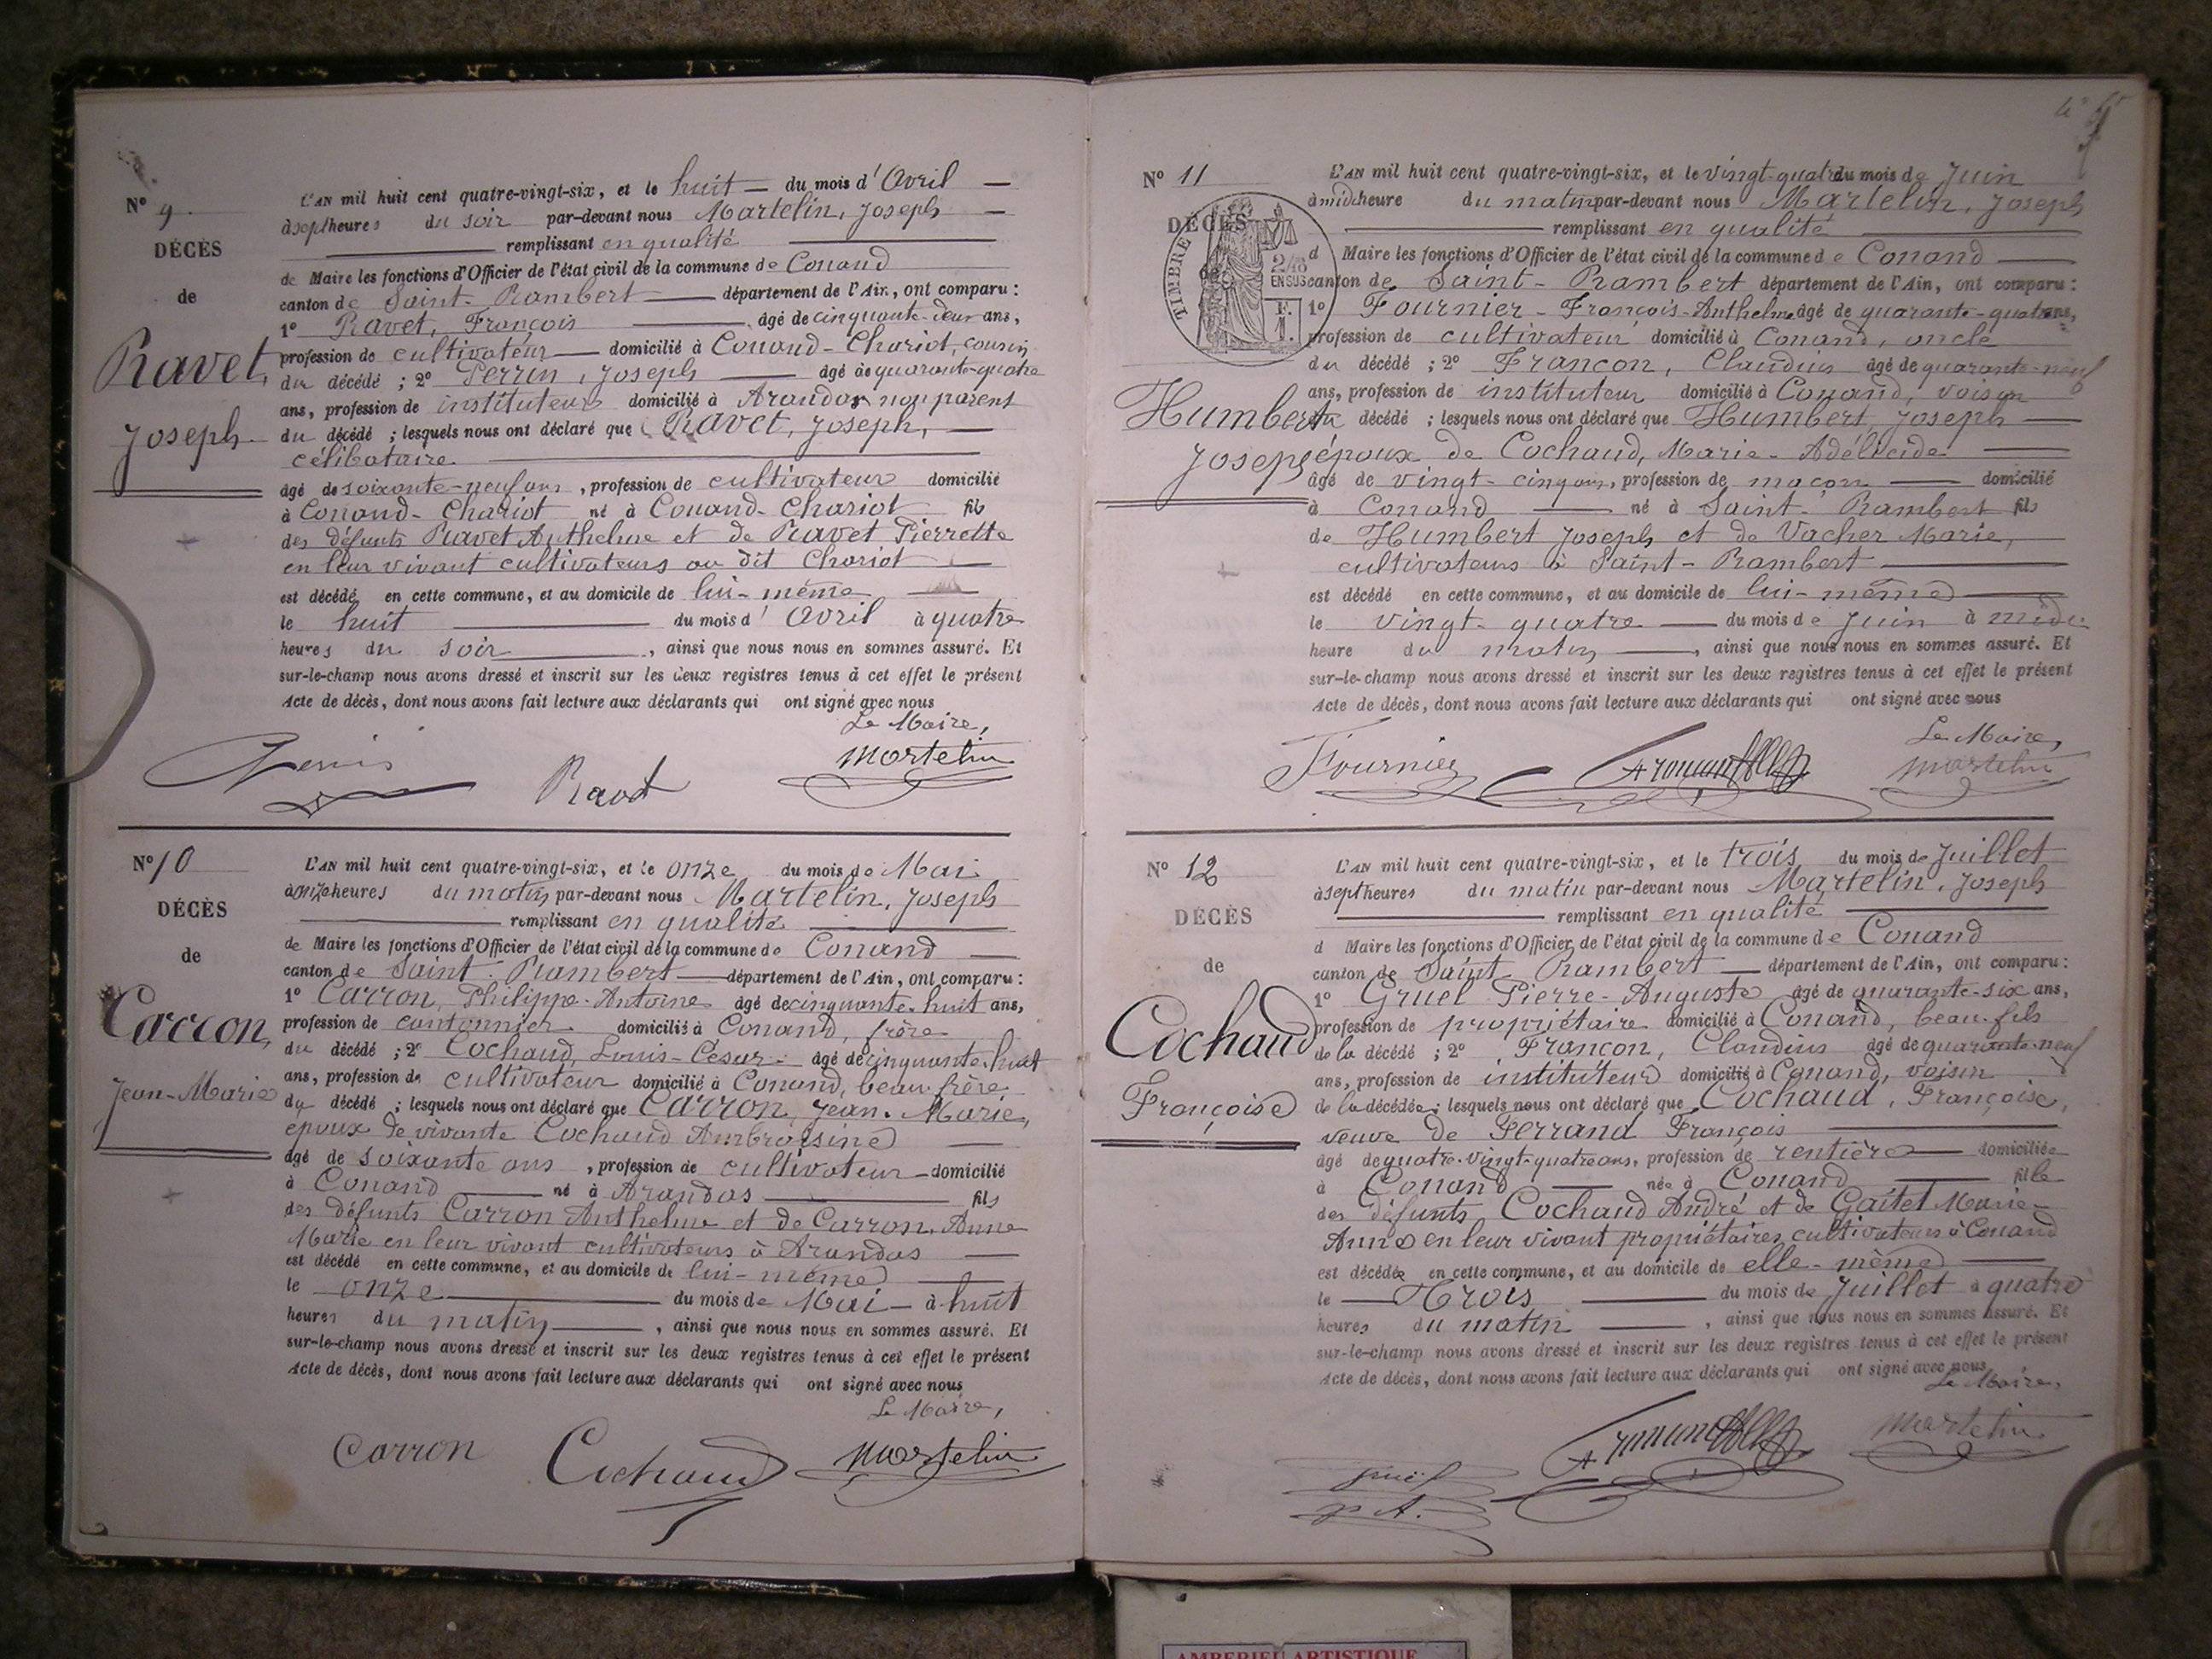 N° 9.
DÉCÈS
de
Ravet,
Joseph
L'AN mil huit cent quatre-vingt-six, et le huit du mois d'Avril
à sept heures du soir par-devant nous Martelin, Joseph
remplissant en qualité
de Maire les fonctions d'Officier de l'état civil de la commune de Conand
canton de Saint-Rambert département de l'Ain, ont comparu :
1° Ravet, François âgé de cinquante-deux ans,
profession de cultivateur domicilié à Conand-Chariot, cousin
du décédé ; 2° Perrin, Joseph âgé de quarante-quatre
ans, profession de instituteur domicilié à Arandas non parent
du décédé ; lesquels nous ont déclaré que Ravet, Joseph,
célibataire
âgé de soixante-neuf ans, profession de cultivateur domicilié
à Conand-Chariot né à Conand-Chariot fils
des défunts Ravet Anthelme et de Ravet Pierrette
en leur vivant cultivateurs au dit Chariot
est décédé en cette commune, et au domicile de lui-même
le huit du mois d'Avril à quatre
heures du soir, ainsi que nous nous en sommes assuré. Et
sur-le-champ nous avons dressé et inscrit sur les deux registres tenus à cet effet le présent
Acte de décès, dont nous avons fait lecture aux déclarants qui ont signé avec nous
Le Maire,
Ravet
Martelin
N° 10
DÉCÈS
de
Carron,
Jean-Marie
L'AN mil huit cent quatre-vingt-six, et le onze du mois de Mai
à onze heures du matin par-devant nous Martelin, Joseph
remplissant en qualité
de Maire les fonctions d'Officier de l'état civil de la commune de Conand
canton de Saint-Rambert département de l'Ain, ont comparu :
1° Carron, Philippe-Antoine âgé de cinquante-huit ans,
profession de cantonnier domicilié à Conand, frère
du décédé ; 2° Cochaud, Louis-César âgé de cinquante-huit
ans, profession de cultivateur domicilié à Conand, beau-frère
du décédé ; lesquels nous ont déclaré que Carron, Jean-Marie,
époux de vivante Cochaud Ambroisine
âgé de soixante ans, profession de cultivateur domicilié
à Conand né à Arandas fils
des défunts Carron Anthelme et de Carron Anne
Marie en leur vivant cultivateurs à Arandas
est décédé en cette commune, et au domicile de lui-même
le onze du mois de Mai à huit
heures du matin, ainsi que nous nous en sommes assuré. Et
sur-le-champ nous avons dressé et inscrit sur les deux registres tenus à cet effet le présent
Acte de décès, dont nous avons fait lecture aux déclarants qui ont signé avec nous
Le Maire,
Carron
Cochaud
Martelin
N° 11
DÉCÈS
de
TIMBRE
2/10
EN SUS
F.
1.
Humbert
Joseph
L'AN mil huit cent quatre-vingt-six, et le vingt-quatre du mois de Juin
à midi heure du matin par-devant nous Martelin, Joseph
remplissant en qualité
d Maire les fonctions d'Officier de l'état civil de la commune de Conand
canton de Saint-Rambert département de l'Ain, ont comparu :
1° Fournier-François-Anthelme âgé de quarante-quatre ans,
profession de cultivateur domicilié à Conand, oncle
du décédé ; 2° Françon, Claudius âgé de quarante-neuf
ans, profession de instituteur domicilié à Conand, voisin
du décédé ; lesquels nous ont déclaré que Humbert, Joseph
époux de Cochaud, Marie-Adélaïde
âgé de vingt-cinq ans, profession de maçon domicilié
à Conand né à Saint-Rambert fils
de Humbert Joseph et de Vacher Marie,
cultivateurs à Saint-Rambert
est décédé en cette commune, et au domicile de lui-même
le vingt-quatre du mois de Juin à midi
heure du matin, ainsi que nous nous en sommes assuré. Et
sur-le-champ nous avons dressé et inscrit sur les deux registres tenus à cet effet le présent
Acte de décès, dont nous avons fait lecture aux déclarants qui ont signé avec nous
Le Maire,
Fournier
Martelin
N° 12
DÉCÈS
de
Cochaud
Françoise
L'AN mil huit cent quatre-vingt-six, et le trois du mois de Juillet
à sept heures du matin par-devant nous Martelin, Joseph
remplissant en qualité
d Maire les fonctions d'Officier de l'état civil de la commune de Conand
canton de Saint-Rambert département de l'Ain, ont comparu :
1° Gruel Pierre-Auguste âgé de quarante-six ans,
profession de propriétaire domicilié à Conand, beau-fils
de la décédé ; 2° Françon, Claudius âgé de quarante-neuf
ans, profession de instituteur domicilié à Conand, voisin
de la décédée ; lesquels nous ont déclaré que Cochaud, Françoise,
veuve de Ferrand François
âgé de quatre-vingt-quatre ans, profession de rentière domiciliée
à Conand née à Conand fille
des défunts Cochaud André et de Gaitet Marie-
Anne en leur vivant propriétaires cultivateurs à Conand
est décédée en cette commune, et au domicile de elle-même
le Trois du mois de Juillet à quatre
heures du matin, ainsi que nous nous en sommes assuré. Et
sur-le-champ nous avons dressé et inscrit sur les deux registres tenus à cet effet le présent
Acte de décès, dont nous avons fait lecture aux déclarants qui ont signé avec nous
Le Maire,
Martelin
AMBERIEU ARTISTIQUE